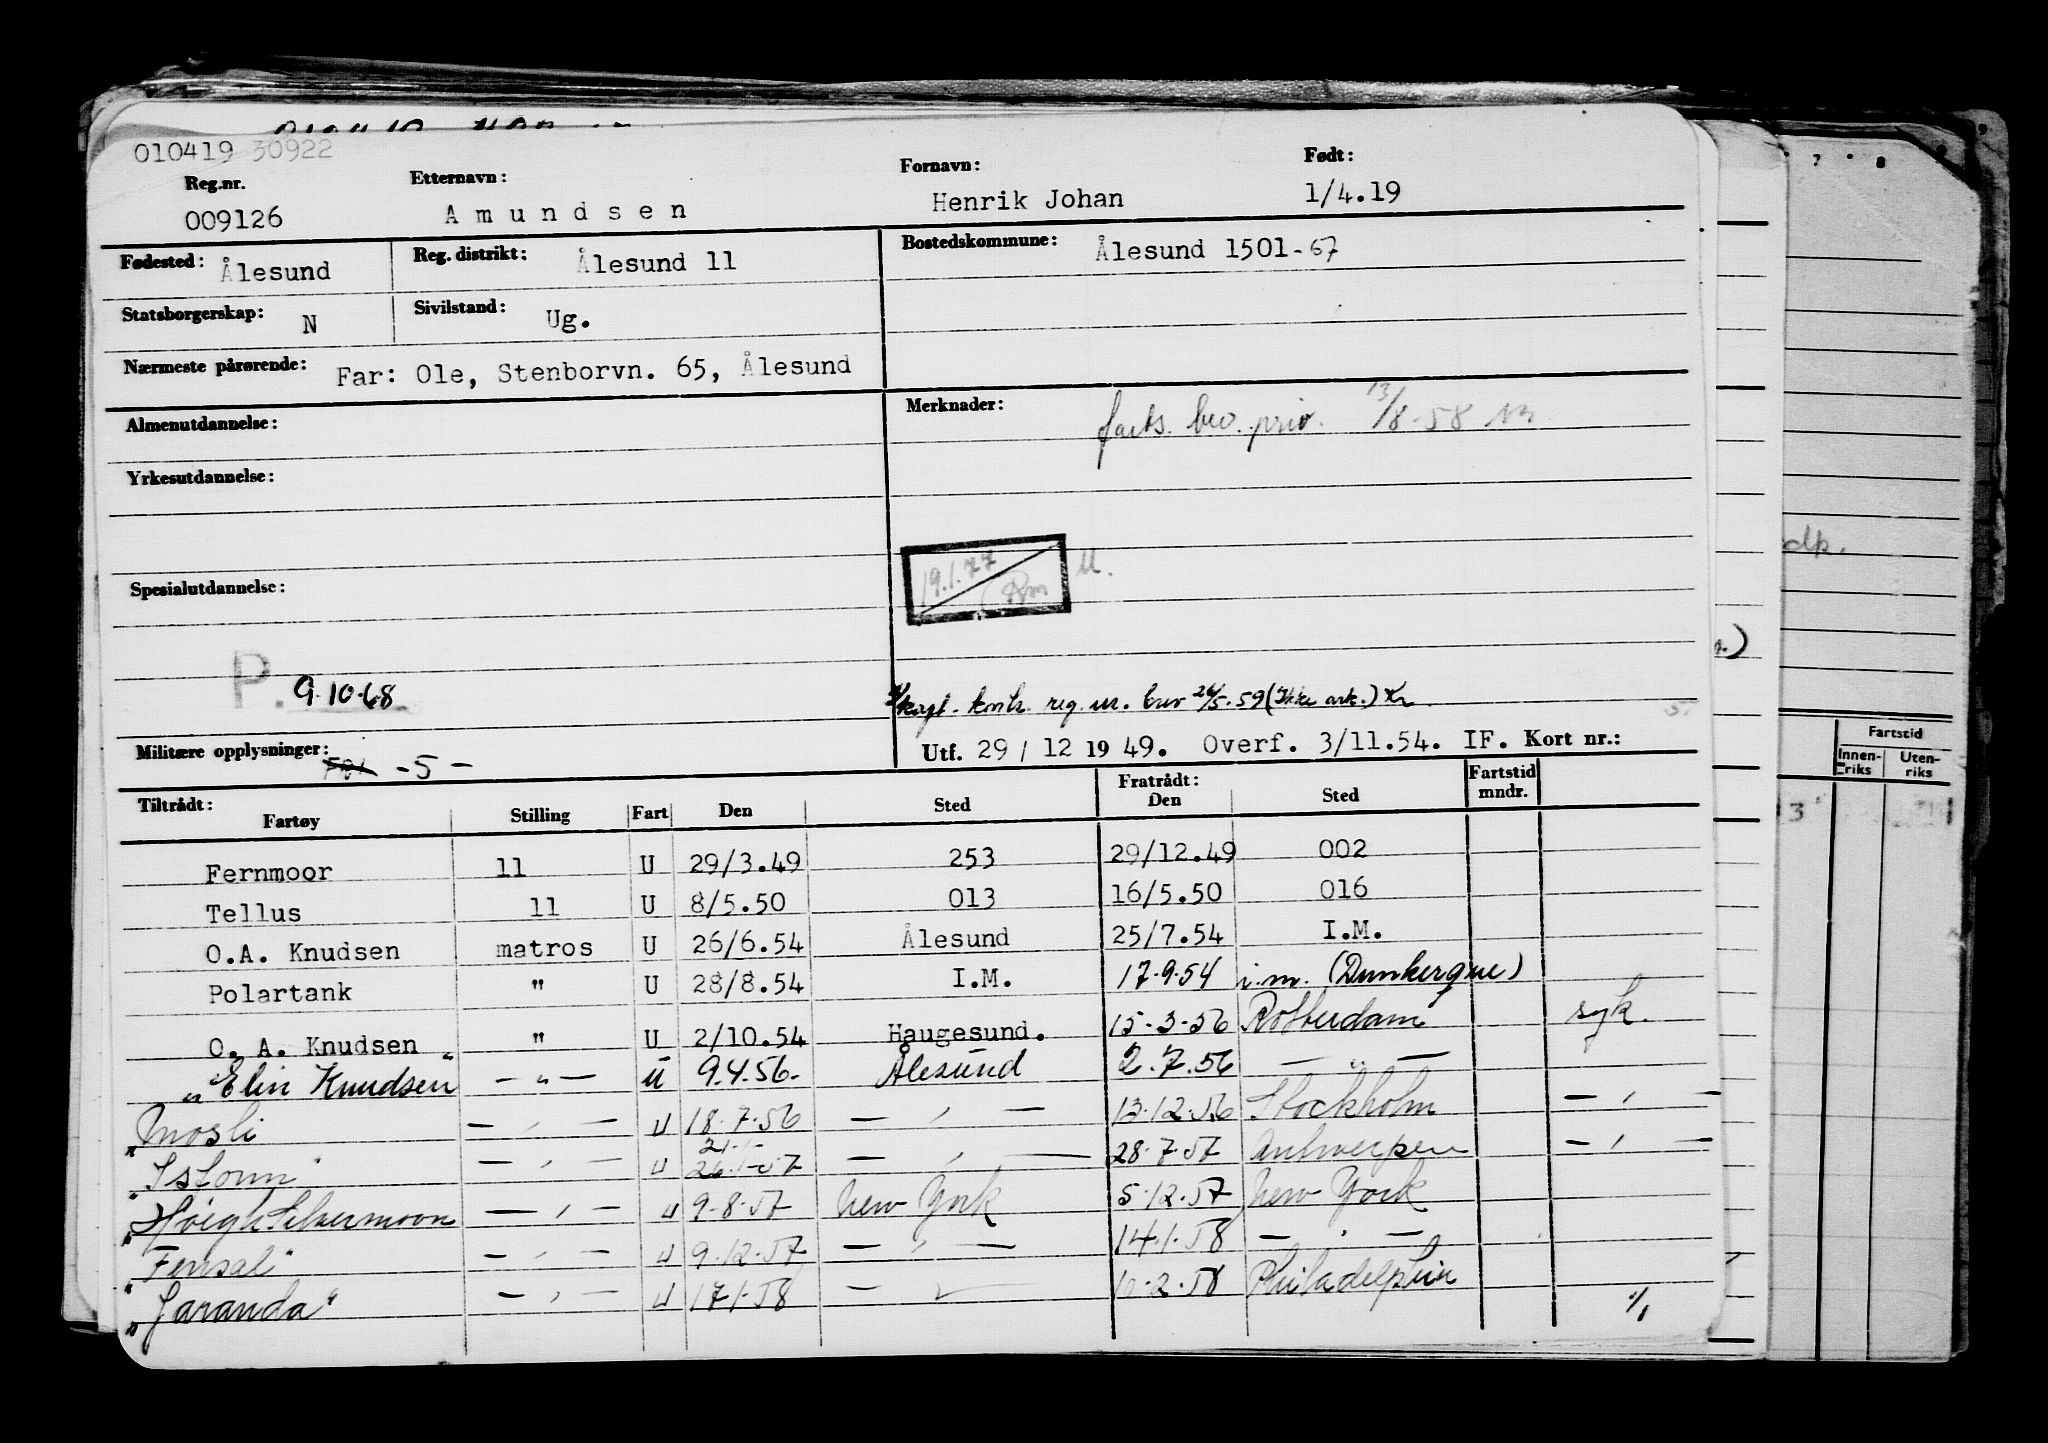 010419 30922
Reg.nr. Etternavn: Fornavn: Født:
009126 Amundsen Henrik Johan 1/4.19
Fødested: Ålesund Reg. distrikt: Ålesund 11 Bostedskommune: Ålesund 1501-67
Statsborgerskap: N Sivilstand: Ug.
Nærmeste pårørende: Far: Ole, Stenborvn. 65, Ålesund
Almenutdannelse: Merknader: farts. bev. priv. 13/8-58
Yrkesutdannelse:
19.1.77
Spesialutdannelse:
P. 9.10.68
kont. reg. nr. brev 26/5.59 (Ikke ark.)
Militære opplysninger: -5- Utf. 29/12 1949. Overf. 3/11.54. IF. Kort nr.:
Tiltrådt: Fratrådt: Fartstid
Fartøy Stilling Fart Den Sted Den Sted mndr.
Fernmoor 11 U 29/3.49 253 29/12.49 002
Tellus 11 U 8/5.50 013 16/5.50 016
O.A. Knudsen matros U 26/6.54 Ålesund 25/7.54 I.M.
Polartank " U 28/8.54 I.M. 17.9.54 i.m. (Dunkerque)
O. A. Knudsen " U 2/10.54 Haugesund. 15-3-56 Rotterdam syk.
"Elin Knudsen" — " — U 9.4.56. Ålesund 2.7.56 — " —
"Mosli — " — U 18.7.56 — " — 13.12.56 Stockholm — " —
21.1-
— " — U 26.1-57 — " — 28.7.57 Antwerpen — " —
"Höegh Silvermoon — " — U 9-8.57 New York 5.12.57 New York
"Fensal" — " — U 9.12.57 — " — 14.1.58 — " —
"Garanda" — " — U 17.1.58 — " — 10-2.58 Philadelphia
Fartstid
Innenriks Utenriks